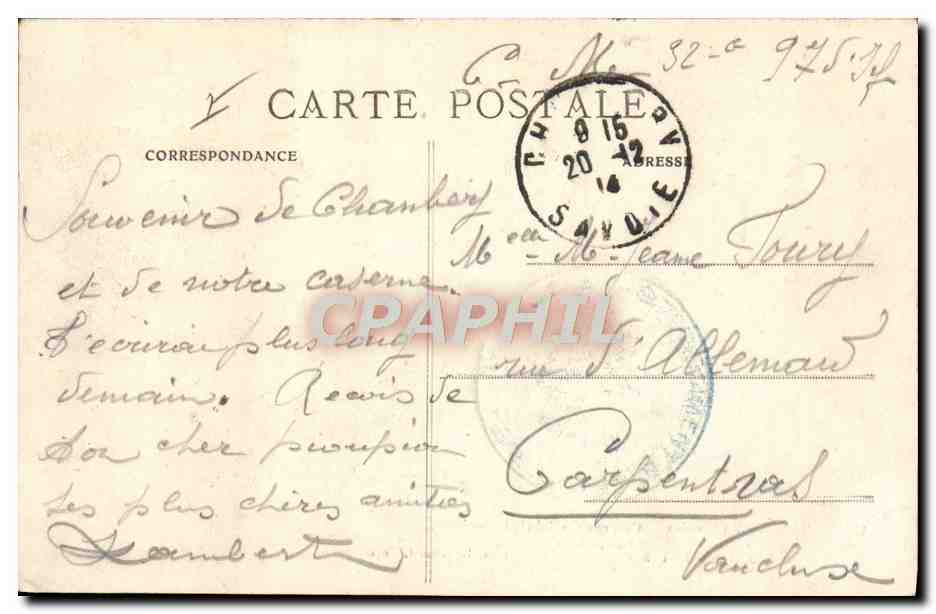 CARTE POSTALE
CORRESPONDANCE
ADRESSE
9 15
20 -12
14
SAVOIE
Souvenir de Chambéry
et de notre caserne.
T'écrirai plus long
demain. Reçois de
ton cher pioupiou
ses plus chères amitiés
Lambert
Melle M. Jeanne
rue d'Allemand
Carpentras
Vaucluse
CPAPHIL